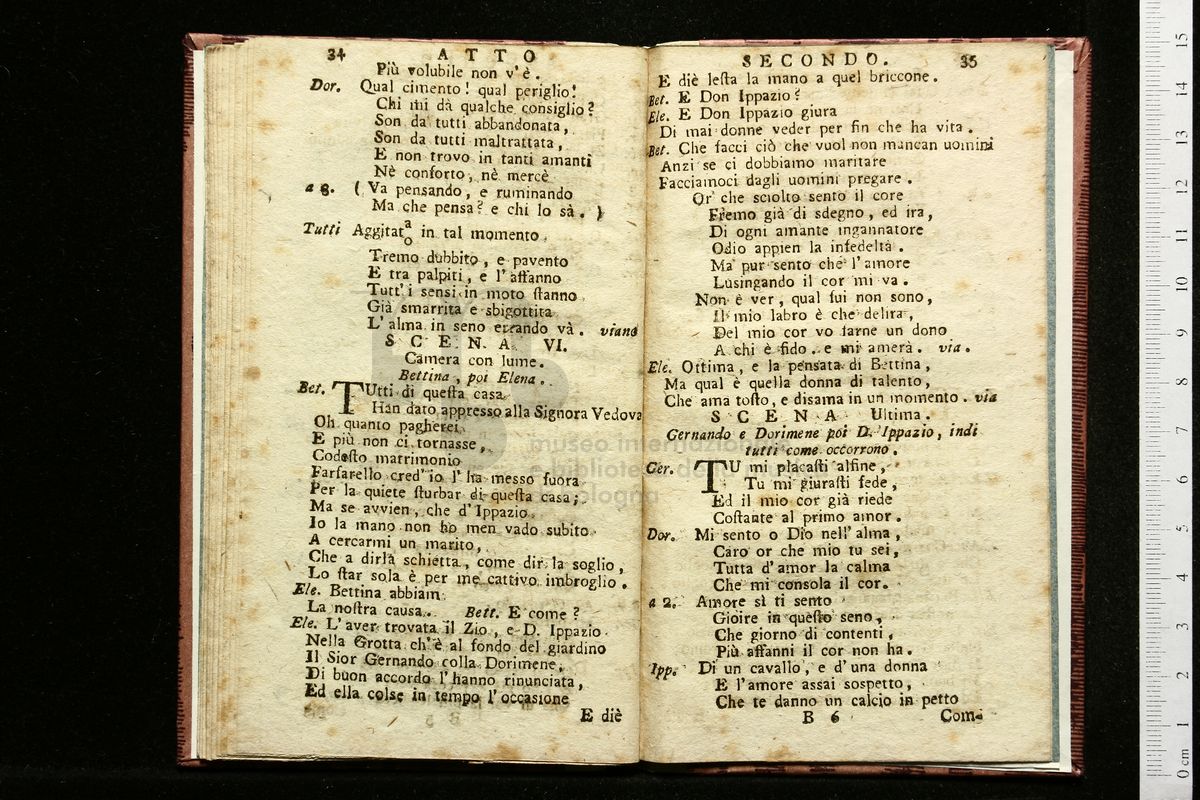 34 ATTO
Più volubile non v'è.
Dor. Qual cimento! qual periglio!
Chi mi dà qualche consiglio?
Son da tutti abbandonata,
Son da tutti maltrattata,
E non trovo in tanti amanti
Nè conforto, nè mercè
a 8. (Va pensando, e ruminando
Ma che pensa? e chi lo sà.)
Tutti Aggitatao in tal momento.
Tremo dubbito, e pavento
E tra palpiti, e l'affanno
Tutt'i sensi in moto ſtanno
Già smarrita e sbigottita
L'alma in seno errando và. viano
SCENA VI.
Camera con lume.
Bettina, poi Elena.
Bet. TUtti di queſta casa
Han dato appresso alla Signora Vedova
Oh quanto pagherei
E più non ci tornasse,
Codeſto matrimonio
Farfarello cred'io l'ha messo fuora
Per la quiete ſturbar di queſta casa;
Ma se avvien, che d'Ippazio
Io la mano non ho men vado subito
A cercarmi un marito,
Che a dirla schietta, come dir la soglio,
Lo ſtar sola è per me cattivo imbroglio.
Ele. Bettina abbiam
La noſtra causa. Bett. E come?
Ele. L'aver trovata il Zio, e D. Ippazio
Nella Grotta ch'è al fondo del giardino
Il Sior Gernando colla Dorimene,
Di buon accordo l'hanno rinunciata,
Ed ella colse in tempo l'occasione
E diè
SECONDO. 35
E diè leſta la mano a quel briccone.
Bet. E Don Ippazio?
Ele. E Don Ippazio giura
Di mai donne veder per fin che ha vita.
Bet. Che facci ciò che vuol non mancan uomini
Anzi se ci dobbiamo maritare
Facciamoci dagli uomini pregare.
Or che sciolto sento il core
Fremo già di sdegno, ed ira,
Di ogni amante ingannatore
Odio appien la infedeltà.
Ma pur sento che l'amore
Lusingando il cor mi va.
Non è ver, qual fui non sono,
Il mio labro è che delira,
Del mio cor vo farne un dono
A chi è fido e mi amerà. via.
Ele. Ottima, e la pensata di Bettina,
Ma qual è quella donna di talento,
Che ama toſto, e disama in un momento. via
SCENA Ultima.
Gernando e Dorimene poi D. Ippazio, indi
tutti come occorrono.
Ger. TU mi placaſti alfine,
Tu mi giuraſti fede,
Ed il mio cor già riede
Coſtante al primo amor.
Dor. Mi sento o Dio nell'alma,
Caro or che mio tu sei,
Tutta d'amor la calma
Che mi consola il cor.
a 2. Amore sì ti sento
Gioire in queſto seno,
Che giorno di contenti,
Più affanni il cor non ha.
Ipp. Di un cavallo, e d'una donna
E l'amore assai sospetto,
Che te danno un calcio in petto
B 6 Com-
museo internazionale
e biblioteca della musica
di bologna
0 cm 1 2 3 4 5 6 7 8 9 10 11 12 13 14 15